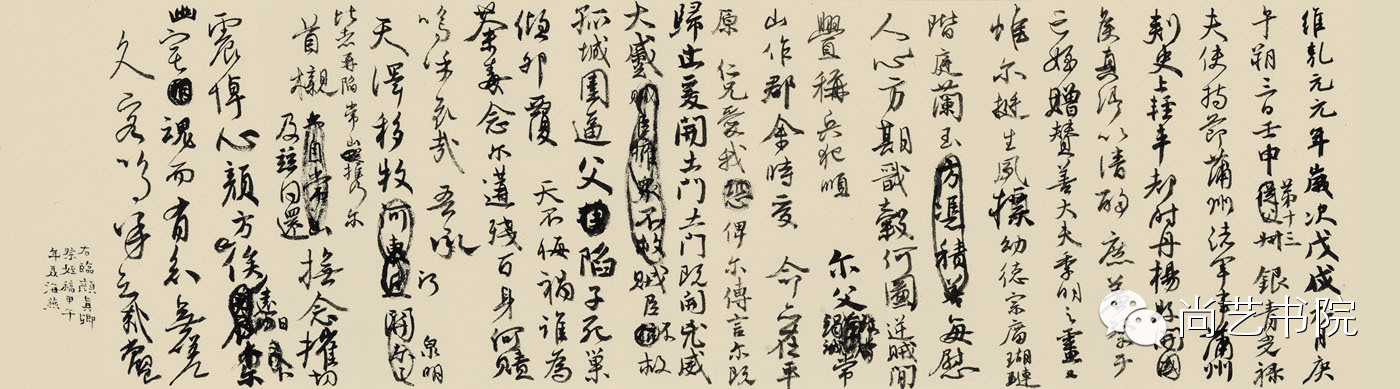 维乾元元年岁次戊戌九月庚
午朔三日壬申第十三叔银青光禄
夫使持节蒲州诸军事蒲州
刺史上轻车都尉丹杨县开国
侯真卿以清酌庶羞祭于
亡侄赠赞善大夫季明之灵曰
惟尔挺生夙标幼德宗庙瑚琏
阶庭兰玉方凭积善每慰
人心方期戬穀何图逆贼间
衅称兵犯顺尔父竭诚常
山作郡余时受命亦在平
原仁兄爱我恐俾尔传言尔既
归止爰开土门土门既开凶威
大蹙贼臣拥众不救贼臣不救
孤城围逼父陷子死巢
倾卵覆天不悔祸谁为
荼毒念尔遘残百身何赎
呜乎哀哉吾承
天泽移牧河东近河关泉明
比者再陷常山携尔
首榇及兹同还抚念摧切
震悼心颜方俟远日
幽宅魂而有知无嗟
久客呜呼哀哉尚飨
右临颜真卿
祭侄稿甲午
年聂海燕
尚艺书院